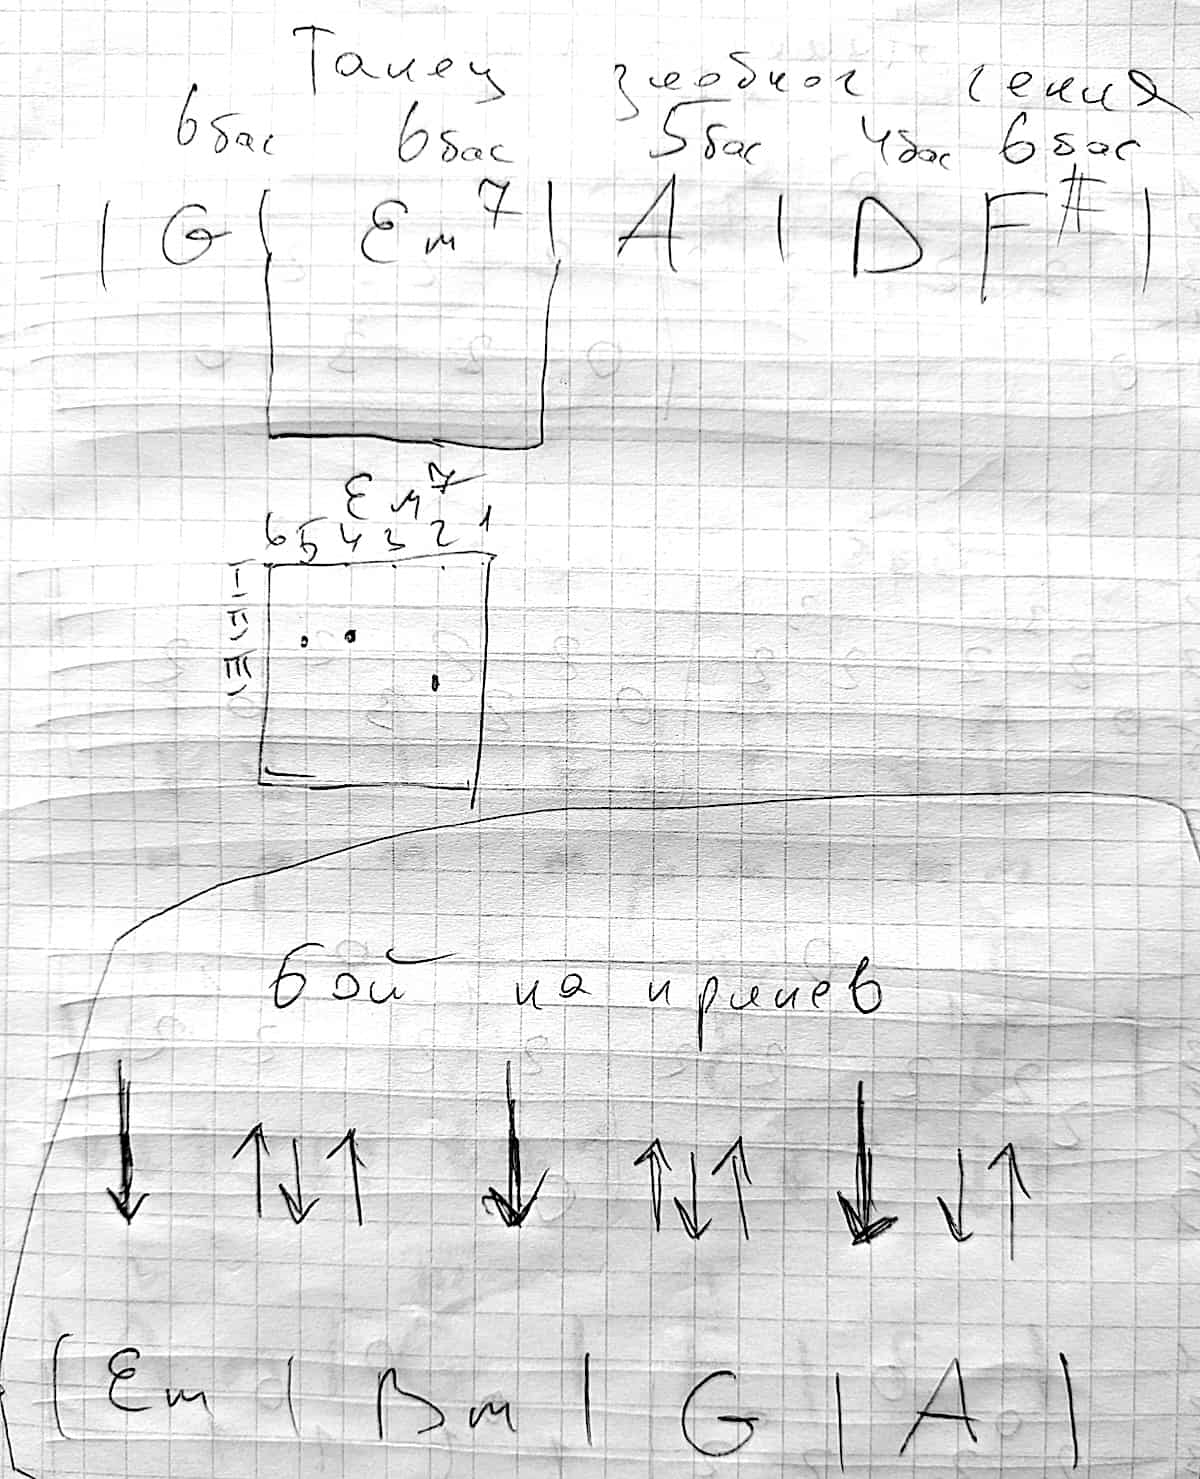 Танец злобного гения
6 бас 6 бас 5 бас 4 бас 6 бас
| G | Em7 | A | D F# |
Em7
6 5 4 3 2 1
I
II
III
бой на припев
↓ ↑↓↑ ↓ ↑↓↑ ↓ ↓↑
| Em | Bm | G | A |